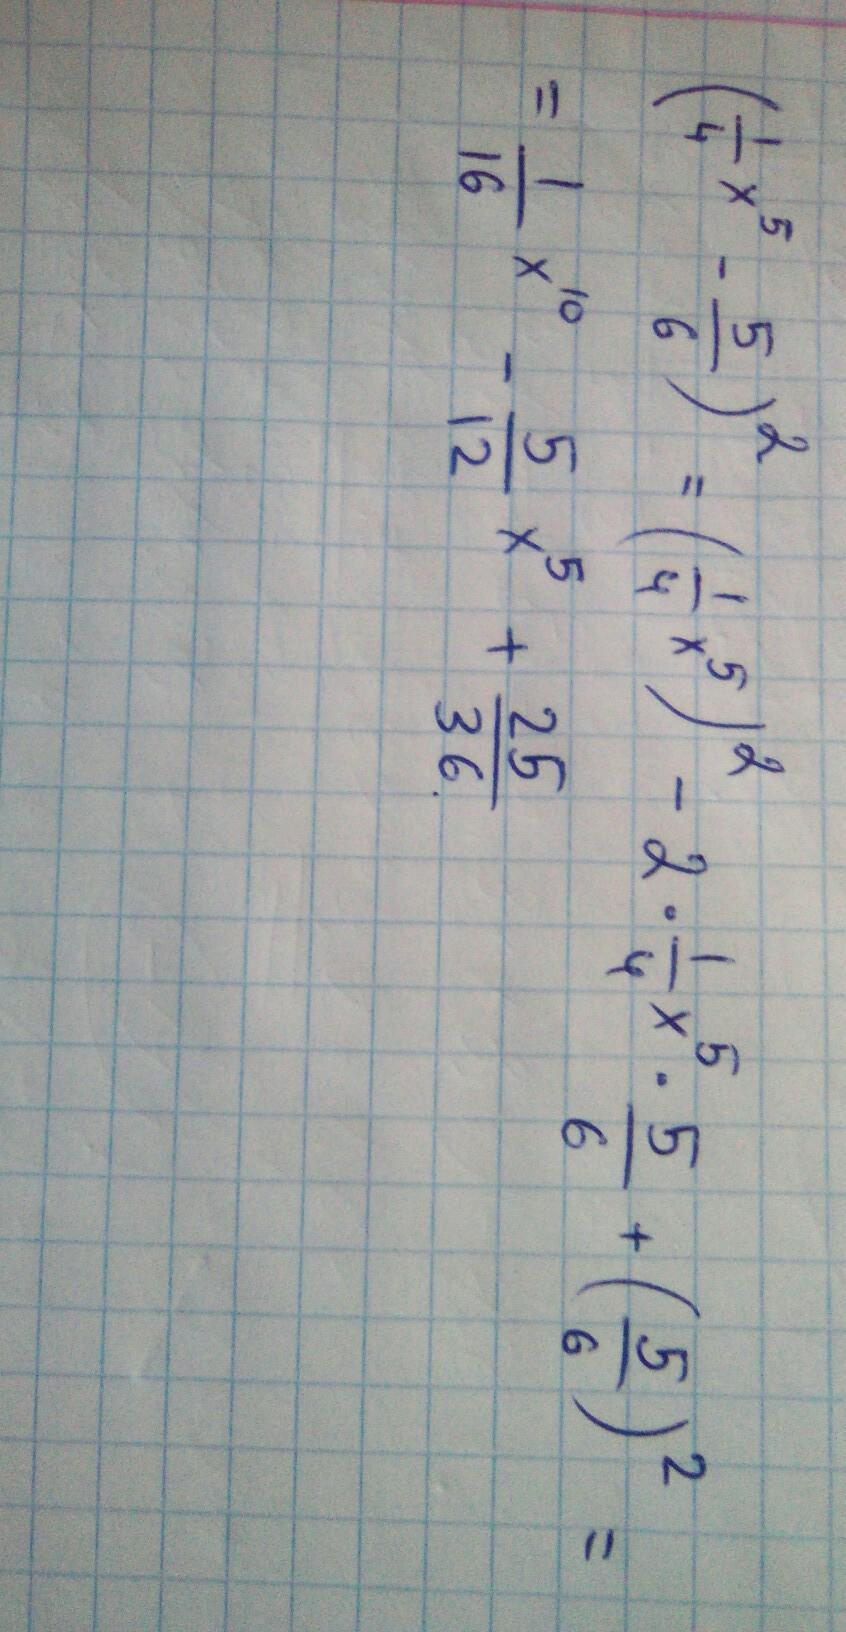 (1/4 x⁵ - 5/6)² = (1/4 x⁵)² - 2 · 1/4 x⁵ · 5/6 + (5/6)² =
= 1/16 x¹⁰ - 5/12 x⁵ + 25/36.